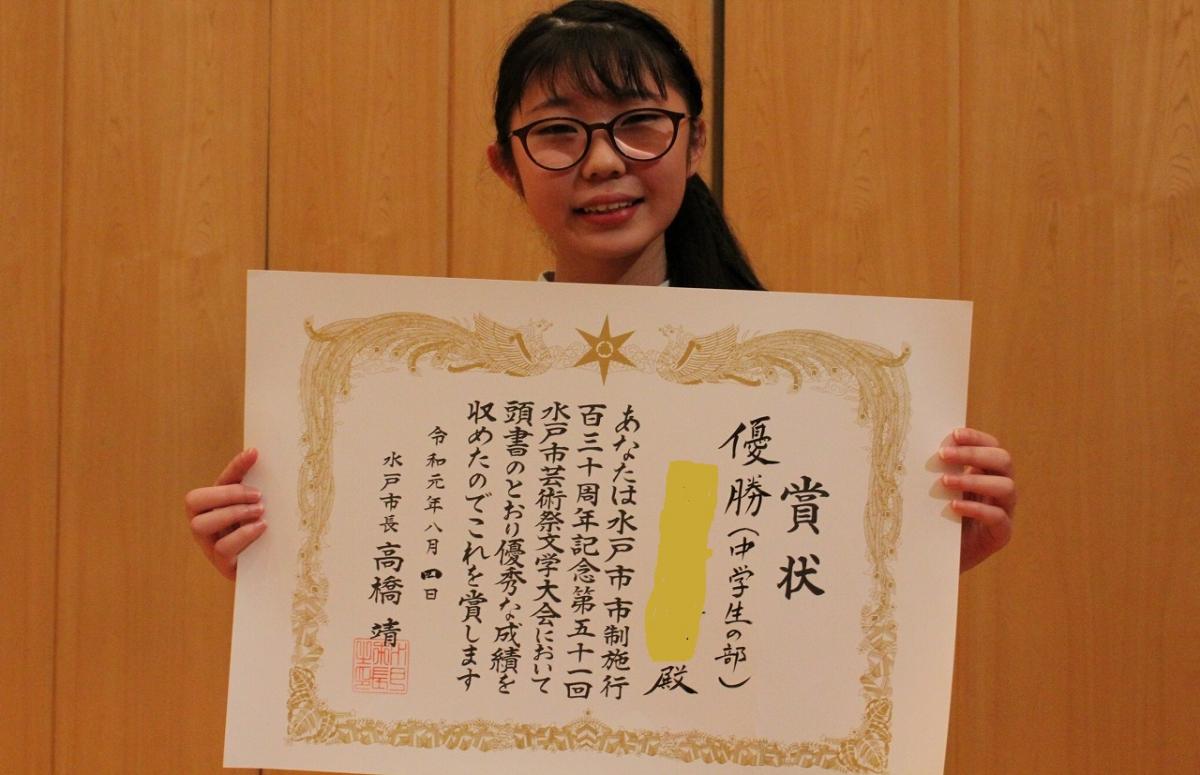 賞状
優勝(中学生の部)
殿
あなたは水戸市市制施行
百三十周年記念第五十一回
水戸市芸術祭文学大会において
頭書のとおり優秀な成績を
収めたのでこれを賞します
令和元年八月四日
水戸市長 高橋 靖